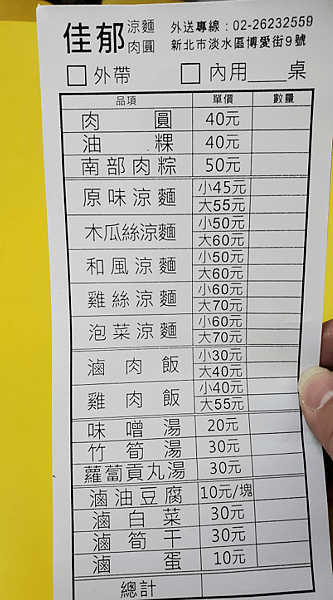 佳郁 涼麵 肉圓
外送專線：02-26232559
新北市淡水區博愛街9號
□外帶 □內用____桌
品項 單價 數量
肉圓 40元
油粿 40元
南部肉粽 50元
原味涼麵 小45元
大55元
木瓜絲涼麵 小50元
大60元
和風涼麵 小50元
大60元
雞絲涼麵 小60元
大70元
泡菜涼麵 小60元
大70元
滷肉飯 小30元
大40元
雞肉飯 小40元
大55元
味噌湯 20元
竹筍湯 30元
蘿蔔貢丸湯 30元
滷油豆腐 10元/塊
滷白菜 30元
滷筍干 30元
滷蛋 10元
總計